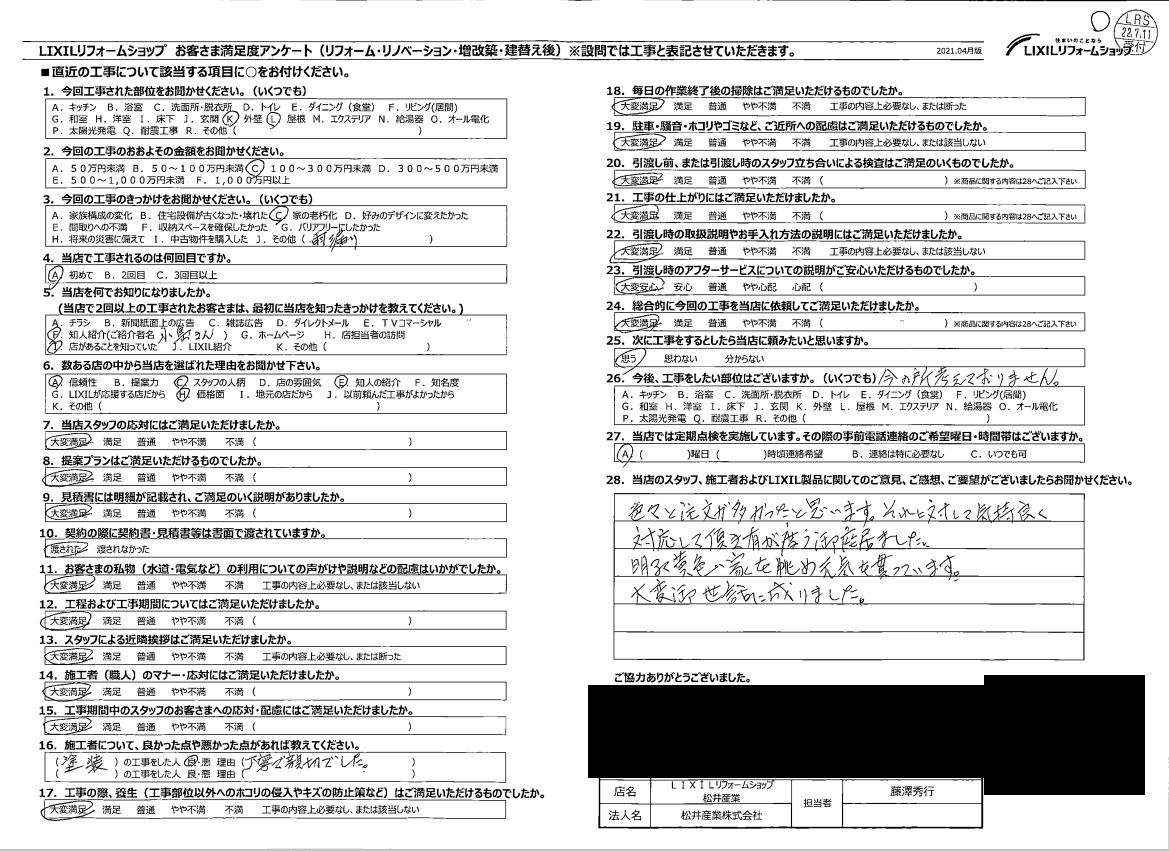 LIXILリフォームショップ お客さま満足度アンケート（リフォーム・リノベーション・増改築・建替え後）※設問では工事と表記させていただきます。
2021.04月版
住まいのことなら
LIXILリフォームショップ
LRS
22.7.11
受付
■直近の工事について該当する項目に○をお付けください。
1．今回工事された部位をお聞かせください。（いくつでも）
A．キッチン B．浴室 C．洗面所・脱衣所 D．トイレ E．ダイニング（食堂） F．リビング(居間)
G．和室 H．洋室 I．床下 J．玄関 K．外壁 L．屋根 M．エクステリア N．給湯器 O．オール電化
P．太陽光発電 Q．耐震工事 R．その他（ ）
2．今回の工事のおおよその金額をお聞かせください。
A．50万円未満 B．50～100万円未満 C．100～300万円未満 D．300～500万円未満
E．500～1,000万円未満 F．1,000万円以上
3．今回の工事のきっかけをお聞かせください。（いくつでも）
A．家族構成の変化 B．住宅設備が古くなった・壊れた C．家の老朽化 D．好みのデザインに変えたかった
E．間取りへの不満 F．収納スペースを確保したかった G．バリアフリーにしたかった
H．将来の災害に備えて I．中古物件を購入した J．その他（雨漏り ）
4．当店で工事されるのは何回目ですか。
A．初めて B．2回目 C．3回目以上
5．当店を何でお知りになりましたか。
(当店で2回以上の工事されたお客さまは、最初に当店を知ったきっかけを教えてください。)
A．チラシ B．新聞紙面上の広告 C．雑誌広告 D．ダイレクトメール E．TVコマーシャル
F．知人紹介(ご紹介者名 さん ) G．ホームページ H．店担当者の訪問
I．店があることを知っていた J．LIXIL紹介 K．その他（ ）
6．数ある店の中から当店を選ばれた理由をお聞かせ下さい。
A．信頼性 B．提案力 C．スタッフの人柄 D．店の雰囲気 E．知人の紹介 F．知名度
G．LIXILが応援する店だから H．価格面 I．地元の店だから J．以前頼んだ工事がよかったから
K．その他（ ）
7．当店スタッフの応対にはご満足いただけましたか。
大変満足 満足 普通 やや不満 不満 （ ）
8．提案プランはご満足いただけるものでしたか。
大変満足 満足 普通 やや不満 不満 （ ）
9．見積書には明細が記載され、ご満足のいく説明がありましたか。
大変満足 満足 普通 やや不満 不満 （ ）
10．契約の際に契約書・見積書等は書面で渡されていますか。
渡された 渡されなかった
11．お客さまの私物（水道・電気など）の利用についての声がけや説明などの配慮はいかがでしたか。
大変満足 満足 普通 やや不満 不満 工事の内容上必要なし、または該当しない
12．工程および工事期間についてはご満足いただけましたか。
大変満足 満足 普通 やや不満 不満 （ ）
13．スタッフによる近隣挨拶はご満足いただけましたか。
大変満足 満足 普通 やや不満 不満 工事の内容上必要なし、または断った
14．施工者（職人）のマナー・応対にはご満足いただけましたか。
大変満足 満足 普通 やや不満 不満 （ ）
15．工事期間中のスタッフのお客さまへの応対・配慮にはご満足いただけましたか。
大変満足 満足 普通 やや不満 不満 （ ）
16．施工者について、良かった点や悪かった点があれば教えてください。
（ 塗装 ）の工事をした人 良・悪 理由（丁寧で親切でした。 ）
（ ）の工事をした人 良・悪 理由（ ）
17．工事の際、養生（工事部位以外へのホコリの侵入やキズの防止策など）はご満足いただけるものでしたか。
大変満足 満足 普通 やや不満 不満 工事の内容上必要なし、または該当しない
18．毎日の作業終了後の掃除はご満足いただけるものでしたか。
大変満足 満足 普通 やや不満 不満 工事の内容上必要なし、または断った
19．駐車・騒音・ホコリやゴミなど、ご近所への配慮はご満足いただけるものでしたか。
大変満足 満足 普通 やや不満 不満 工事の内容上必要なし、または該当しない
20．引渡し前、または引渡し時のスタッフ立ち合いによる検査はご満足のいくものでしたか。
大変満足 満足 普通 やや不満 不満 （ ）※商品に関する内容は28へご記入下さい
21．工事の仕上がりにはご満足いただけましたか。
大変満足 満足 普通 やや不満 不満 （ ）※商品に関する内容は28へご記入下さい
22．引渡し時の取扱説明やお手入れ方法の説明にはご満足いただけましたか。
大変満足 満足 普通 やや不満 不満 工事の内容上必要なし、または該当しない
23．引渡し時のアフターサービスについての説明がご安心いただけるものでしたか。
大変安心 安心 普通 やや心配 心配 （ ）
24．総合的に今回の工事を当店に依頼してご満足いただけましたか。
大変満足 満足 普通 やや不満 不満 （ ）※商品に関する内容は28へご記入下さい
25．次に工事をするとしたら当店に頼みたいと思いますか。
思う 思わない 分からない
26．今後、工事をしたい部位はございますか。（いくつでも）今の所考えておりません。
A．キッチン B．浴室 C．洗面所・脱衣所 D．トイレ E．ダイニング（食堂） F．リビング(居間)
G．和室 H．洋室 I．床下 J．玄関 K．外壁 L．屋根 M．エクステリア N．給湯器 O．オール電化
P．太陽光発電 Q．耐震工事 R．その他（ ）
27．当店では定期点検を実施しています。その際の事前電話連絡のご希望曜日・時間帯はございますか。
A （ ）曜日（ ）時頃連絡希望 B．連絡は特に必要なし C．いつでも可
28．当店のスタッフ、施工者およびLIXIL製品に関してのご意見、ご感想、ご要望がございましたらお聞かせください。
色々と注文が多かったと思います。それに対して気持良く
対応して頂き有が度う御座居ました。
明るい黄色い家を眺め元気を貰っています。
大変御世話に成りました。
ご協力ありがとうございました。
店名 LIXILリフォームショップ 松井産業 担当者 藤澤秀行
法人名 松井産業株式会社